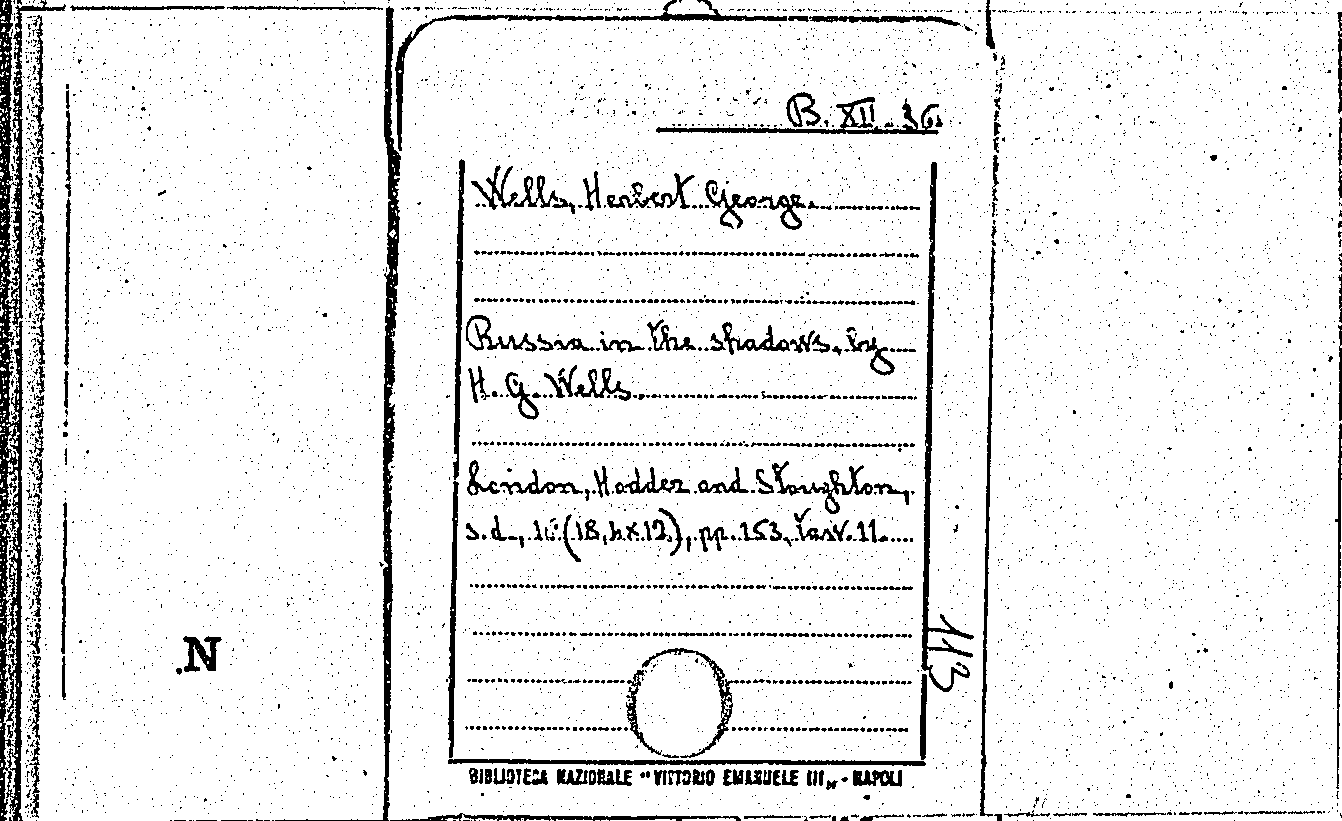 B. XII. 36.
Wells, Herbert George.
Russia in the shadows, by
H. G. Wells.
London, Hodder and Stoughton,
s.d., 16°(18,5x12), pp. 153, tavv. 11.
113
.N
BIBLIOTECA NAZIONALE "VITTORIO EMANUELE III„ - NAPOLI